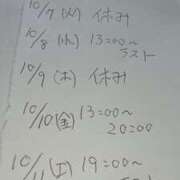 10/7 (火) 休み
10/8 (水) 13:00〜
ラスト
10/9 (木) 休み
10/10 (金) 13:00〜
20:00
10/11 (土) 19:00〜